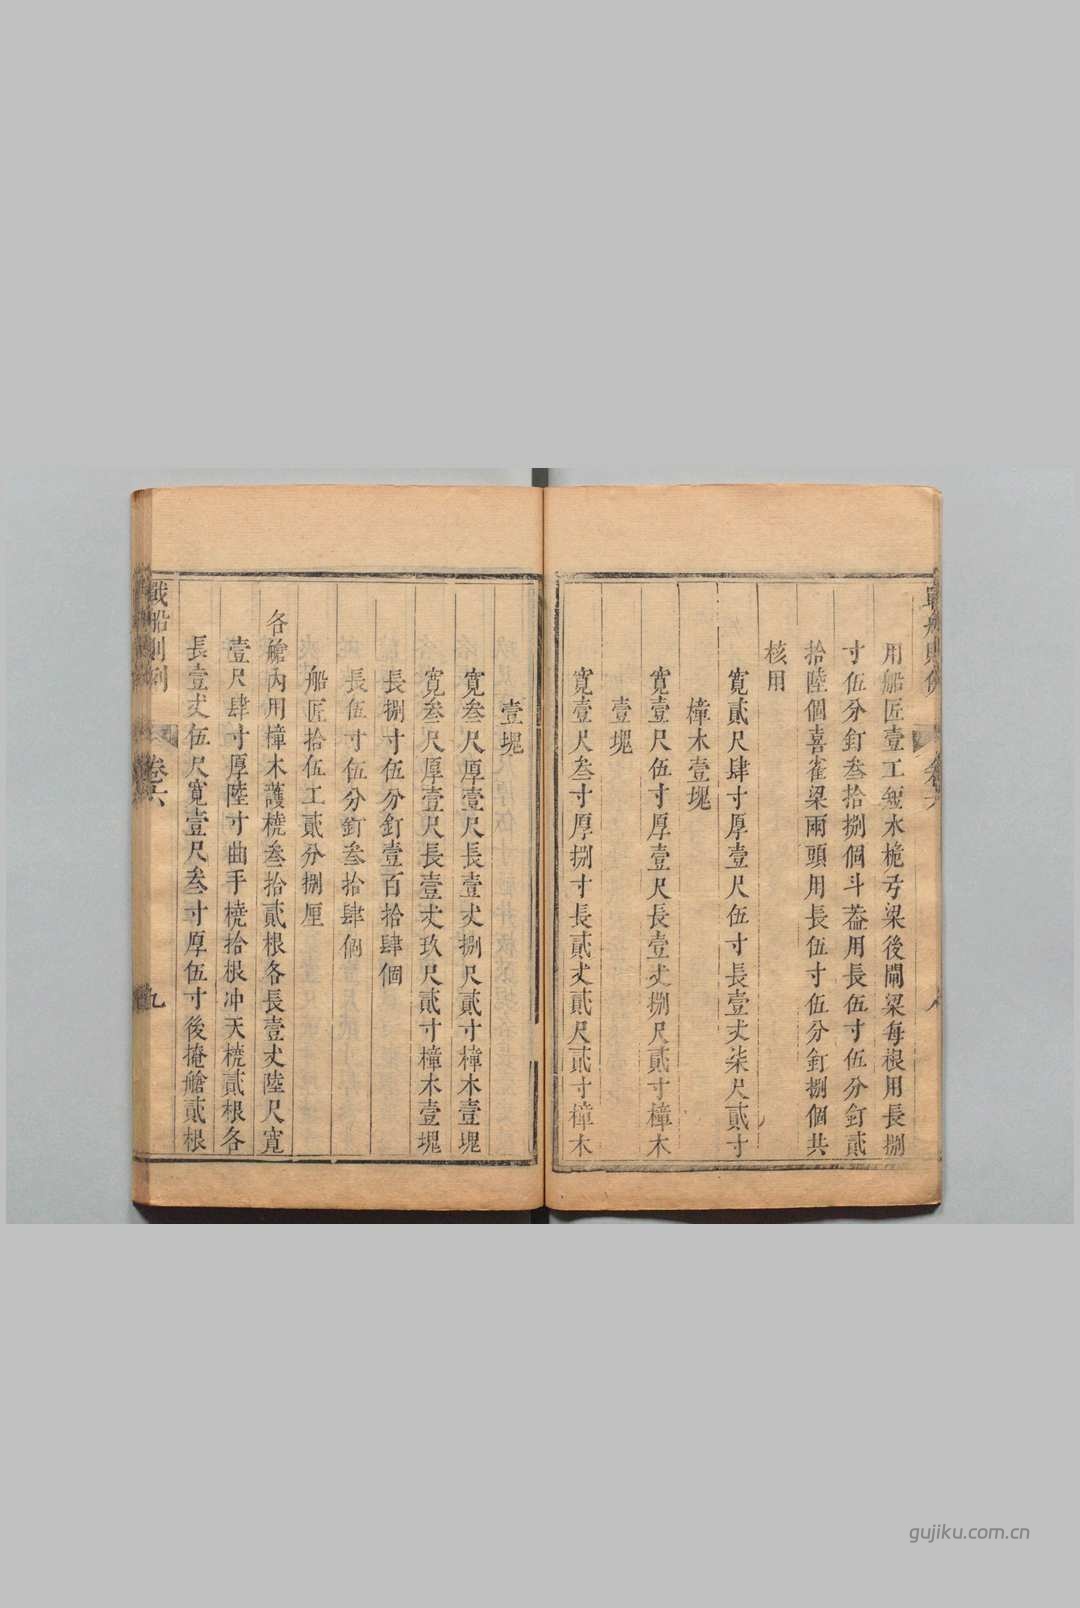 用船匠壹工緩水桅弯梁後閘梁每根用長捌
寸伍分釘叁拾捌個斗葢用長伍寸伍分釘貳
拾陸個喜雀梁兩頭用長伍寸伍分釘捌個共
核用
寬貳尺肆寸厚壹尺伍寸長壹丈柒尺貳寸
樟木壹塊
寬壹尺伍寸厚壹尺長壹丈捌尺貳寸樟木
壹塊
寬壹尺叁寸厚捌寸長貳丈貳尺貳寸樟木
壹塊
寬叁尺厚壹尺長壹丈捌尺貳寸樟木壹塊
寬叁尺厚壹尺長壹丈玖尺貳寸樟木壹塊
長捌寸伍分釘壹百拾肆個
長伍寸伍分釘叁拾肆個
船匠拾伍工貳分捌厘
各艙內用樟木護橈叁拾貳根各長壹丈陸尺寬
壹尺肆寸厚陸寸曲手橈拾根冲天橈貳根各
長壹丈伍尺寬壹尺叁寸厚伍寸後掩艙貳根
戰船則例 卷六 九
gujiku.com.cn